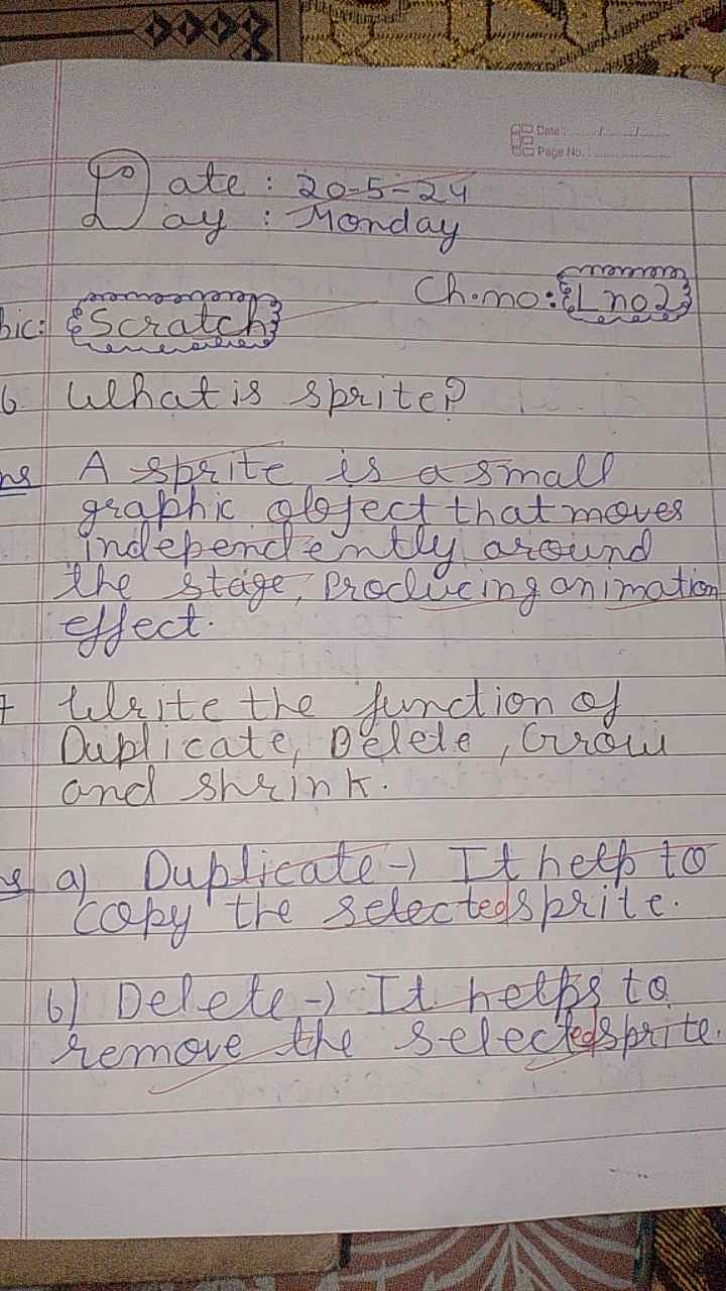 Date : ..../..../....
Page No. : ..........
Date : 20-5-24
Day : Monday
Ch.no : L no 2
bic: Scratch
6 What is sprite?
ns A sprite is a small
graphic object that moves
independently around
the stage, producing animation
effect.
7 Write the function of
Duplicate, Delete, Grow
and shrink.
s a) Duplicate → It help to
copy the selected sprite.
b) Delete → It helps to
remove the selected sprite.